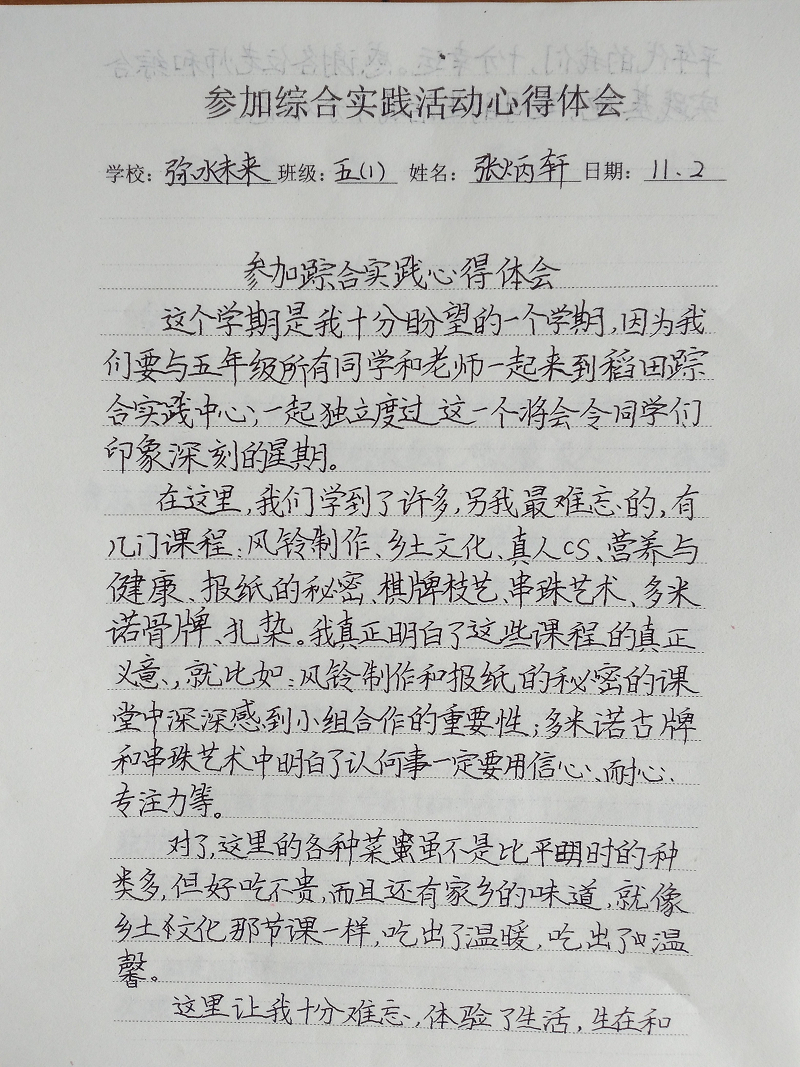 参加综合实践活动心得体会
学校：弥水未来 班级：五(1) 姓名：张炳轩 日期：11.2
参加踪合实践心得体会
这个学期是我十分盼望的一个学期，因为我
们要与五年级所有同学和老师一起来到稻田踪
合实践中心，一起独立度过这一个将会令同学们
印象深刻的星期。
在这里，我们学到了许多，另我最难忘的，有
几门课程：风铃制作、乡土文化、真人CS、营养与
健康、报纸的秘密、棋牌技艺、串珠艺术、多米
诺骨牌、扎染。我真正明白了这些课程的真正
义意、，就比如：风铃制作和报纸的秘密的课
堂中深深感到小组合作的重要性；多米诺古牌
和串珠艺术中明白了认何事一定要用信心、耐心、
专注力等。
对了，这里的各种菜虽不是比平时的种
类多，但好吃不贵，而且还有家乡的味道，就像
乡土文化那节课一样，吃出了温暖，吃出了温
馨。
这里让我十分难忘，体验了生活，生在和